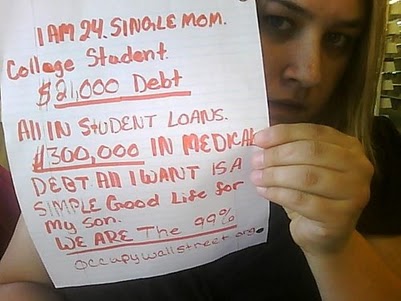 I AM 24. SINGLE MOM.
College Student.
$21,000 Debt
All IN STUDENT LOANS.
$300,000 IN MEDICAL
DEBT All I WANT IS A
SIMPLE Good Life for
My Son.
WE ARE The 99%
occupywallstreet.org